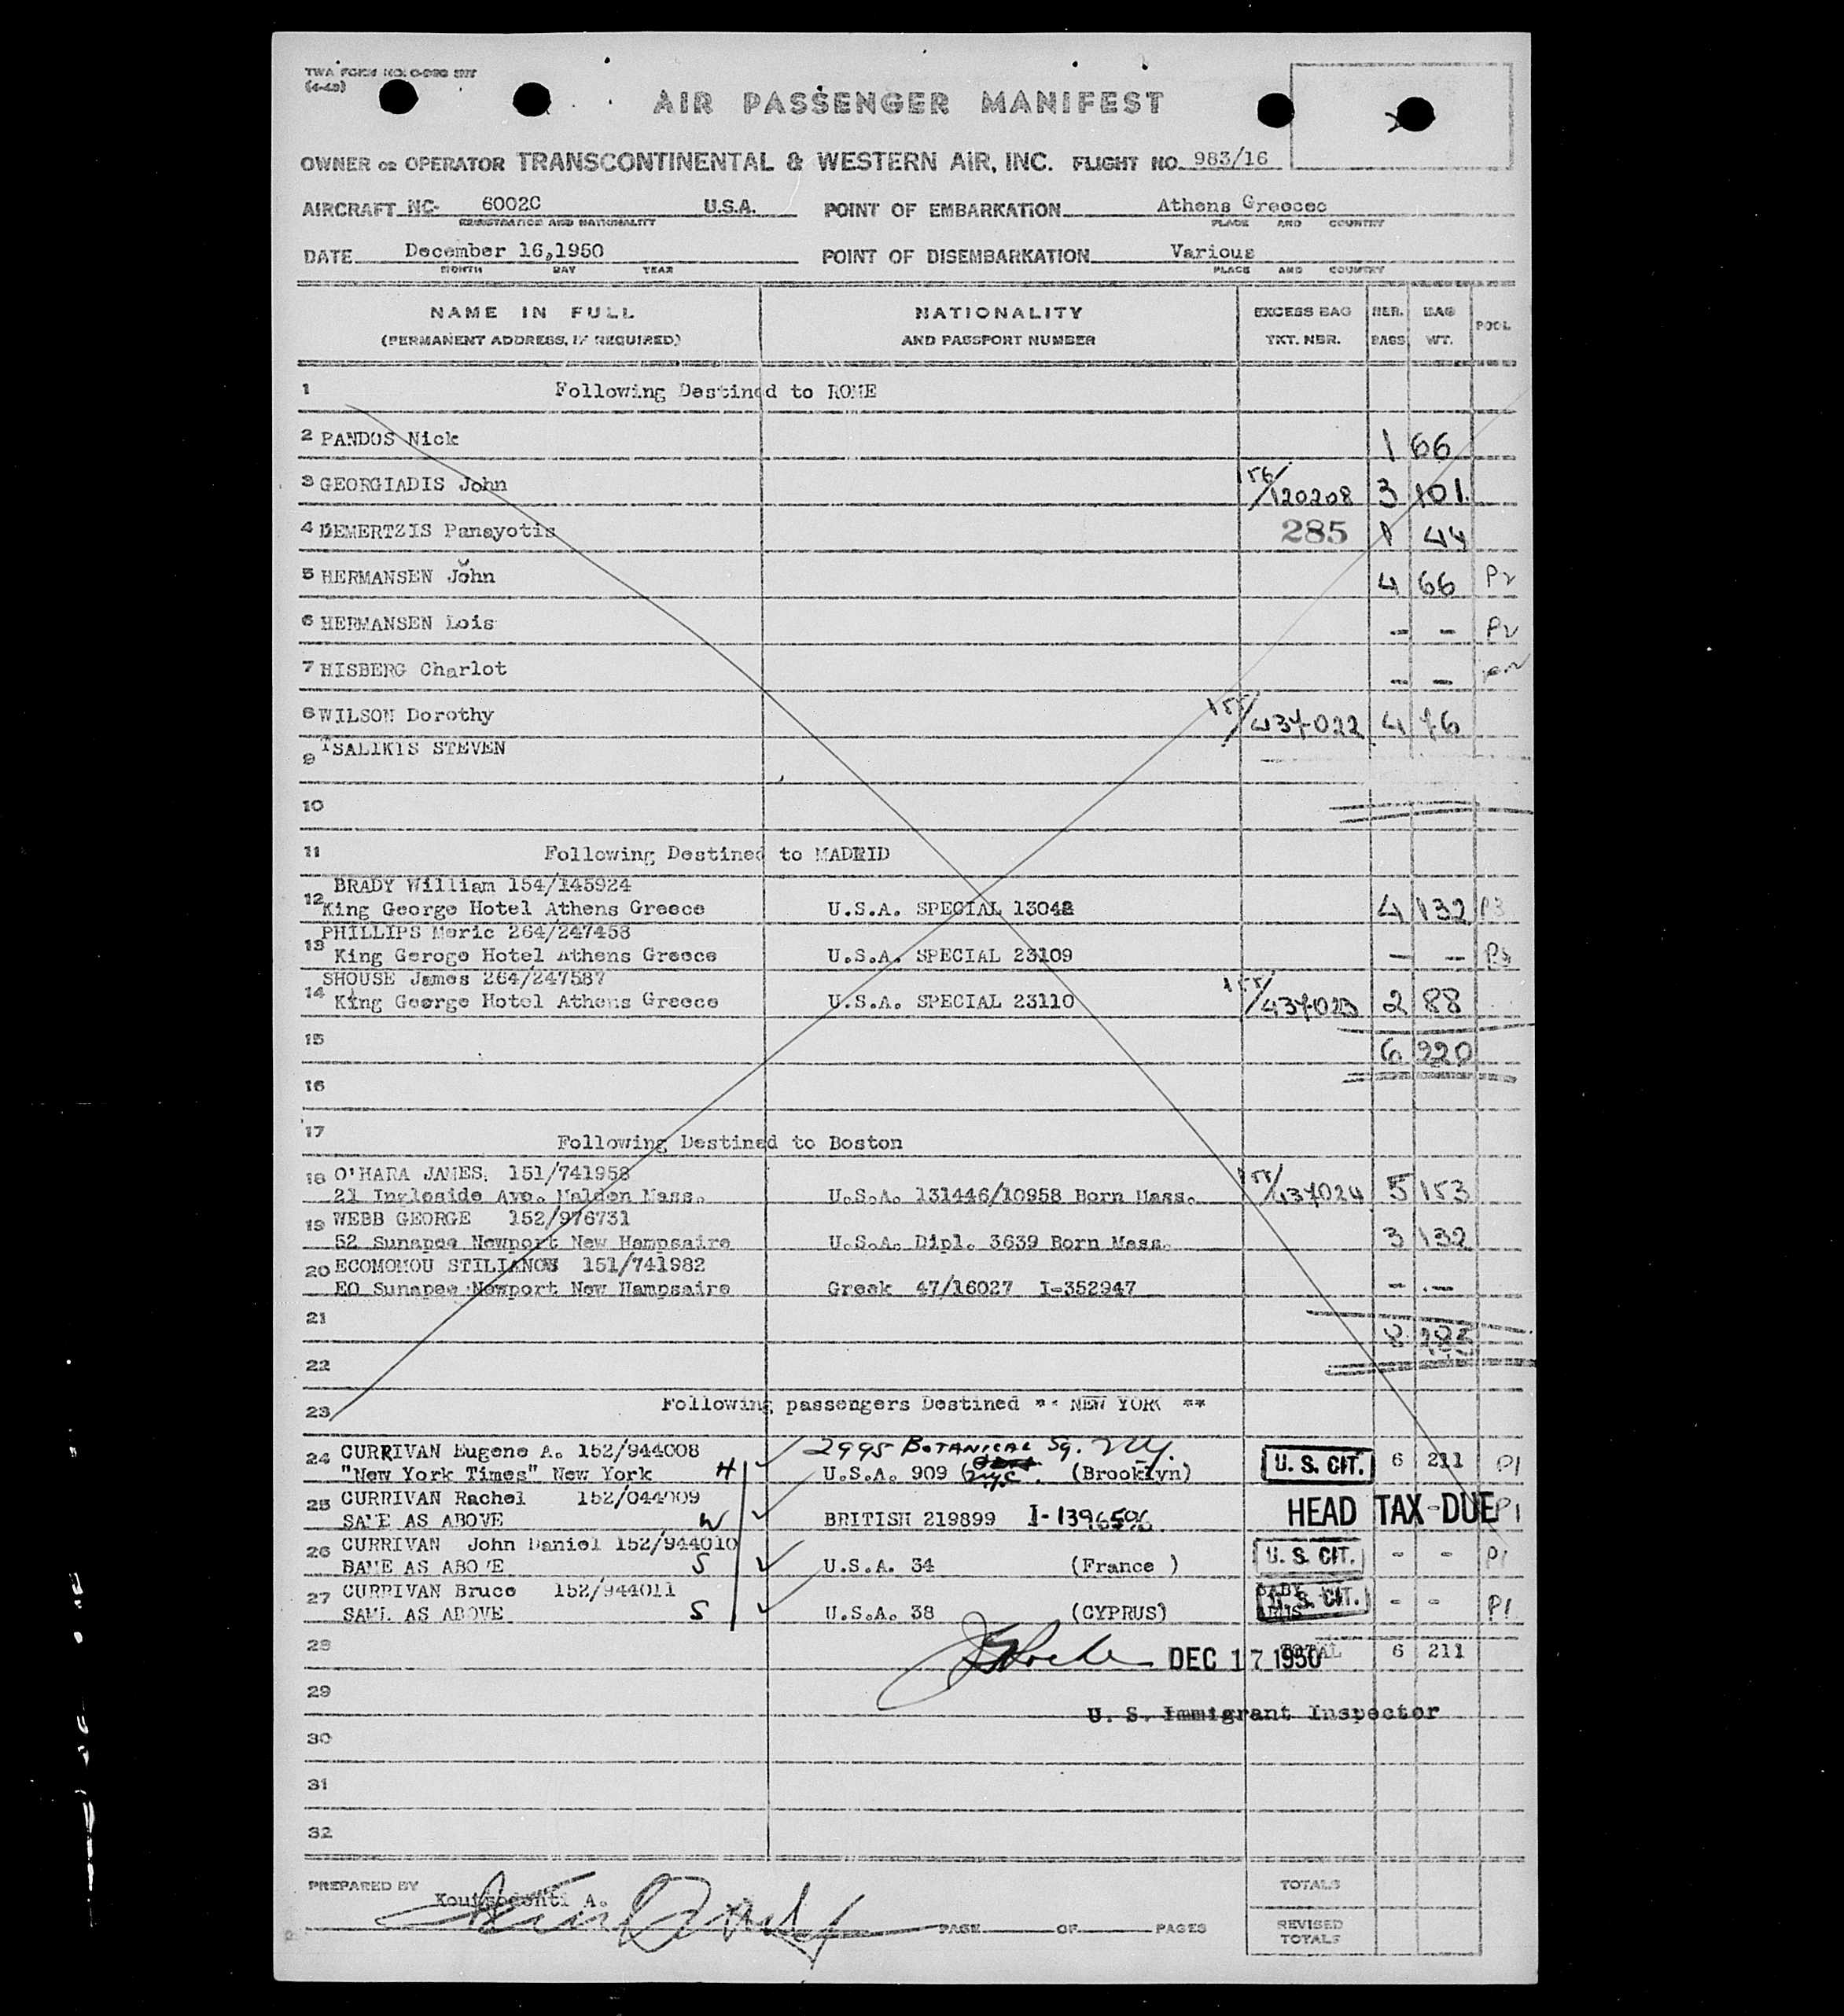 TWA FORM NO.
AIR PASSENGER MANIFEST
OWNER OR OPERATOR TRANSCONTINENTAL & WESTERN AIR, INC. FLIGHT NO. 983/16
AIRCRAFT NC- 6002C U.S.A. POINT OF EMBARKATION Athens Greecec
REGISTRATION AND NATIONALITY PLACE AND COUNTRY
DATE December 16,1950 POINT OF DISEMBARKATION Various
MONTH DAY YEAR PLACE AND COUNTRY
NAME IN FULL NATIONALITY EXCESS BAG NBR. BAG POOL
(PERMANENT ADDRESS, IF REQUIRED) AND PASSPORT NUMBER TKT. NBR. BAGS WT.
1 Following Destined to ROME
2 PANDOS Nick 1 66
3 GEORGIADIS John 156/120208 3 101
4 DEMERTZIS Panayotis 285 1 44
5 HERMANSEN John 4 66 P2
6 HERMANSEN Lois - - P2
7 HISBERG Charlot - -
8 WILSON Dorothy 155/437022 4 76
9 TSALIKIS STEVEN
10
11 Following Destined to MADRID
BRADY William 154/145924
12 King George Hotel Athens Greece U.S.A. SPECIAL 13048 4 132 P3
PHILLIPS Meric 264/247458
13 King Geroge Hotel Athens Greece U.S.A. SPECIAL 23109 - - P3
SHOUSE James 264/247587
14 King George Hotel Athens Greece U.S.A. SPECIAL 23110 155/437023 2 88
15 6 220
16
17 Following Destined to Boston
18 O'HARA JAMES. 151/741958
21 Ingleside Ave. Malden Mass. U.S.A. 131446/10958 Born Mass. 155/437024 5 153
19 WEBB GEORGE 152/976731
52 Sunapee Newport New Hampsaire U.S.A. Dipl. 3639 Born Mass. 3 132
20 ECOMOMOU STILIANOS 151/741982
EO Sunapee Newport New Hampsaire Greek 47/16027 I-352947 - -
21 8
22
23 Following passengers Destined ** NEW YORK **
24 CURRIVAN Eugene A. 152/944008 2995 BOTANICAL Sq. NY.
"New York Times" New York H U.S.A. 909 NYC. (Brooklyn) U. S. CIT. 6 211 P1
25 CURRIVAN Rachel 152/044009
SAME AS ABOVE W BRITISH 219899 I-1396596 HEAD TAX DUE P1
26 CURRIVAN John Daniel 152/944010
BAME AS ABOVE S U.S.A. 34 (France ) U. S. CIT. - - P1
27 CURRIVAN Bruce 152/944011 BABY
SAME AS ABOVE S U.S.A. 38 (CYPRUS) U. S. CIT. - - P1
28 DEC 17 1950 TOTAL 6 211
29
U. S. Immigrant Inspector
30
31
32
PREPARED BY TOTALS
Koutsodonti A.
PAGE OF PAGES REVISED
TOTALS